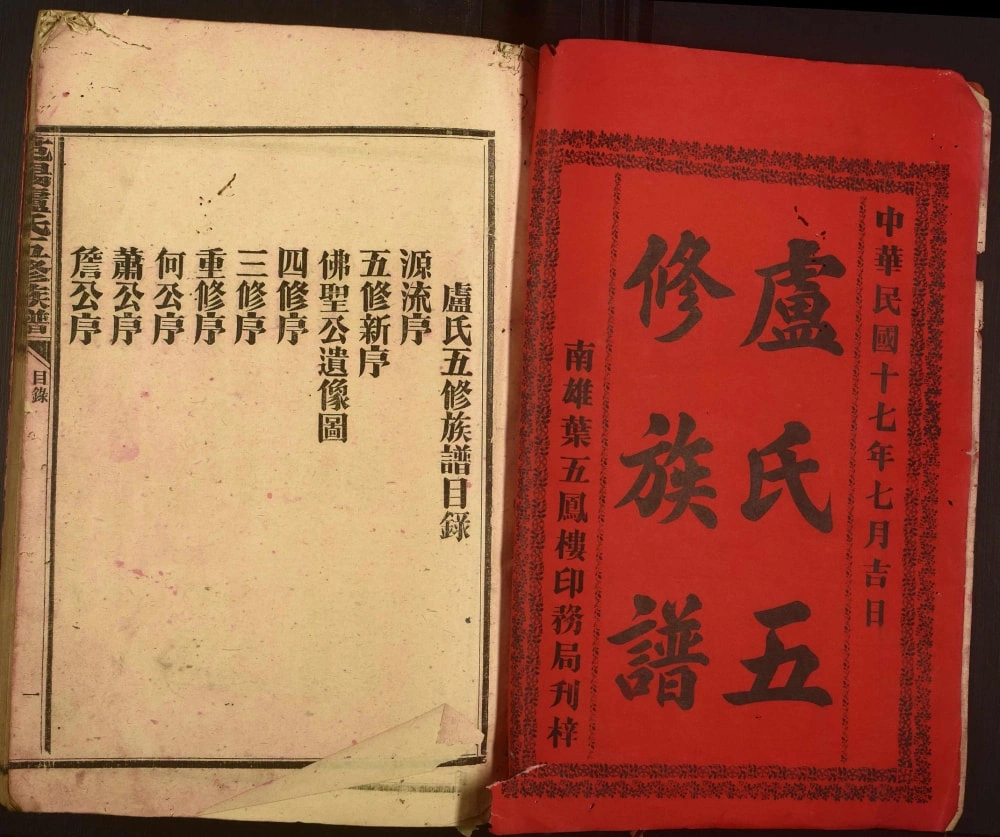 中華民國十七年七月吉日
盧氏五
修族譜
南雄葉五鳳樓印務局刊梓
盧氏五修族譜目錄
源流序
五修新序
佛聖公遺像圖
四修序
三修序
重修序
何公序
蕭公序
詹公序
盧氏五修族譜
目錄
一